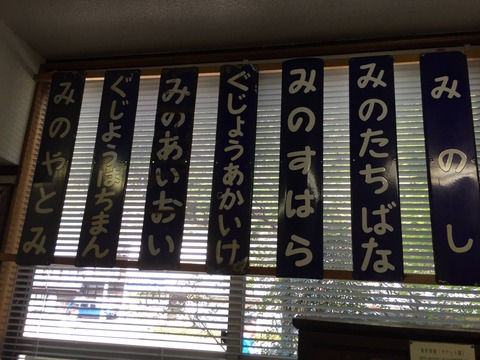 みのし
みのたちばな
みのすはら
ぐじょうあかいけ
みのあいおい
ぐじょうはちまん
みのやとみ